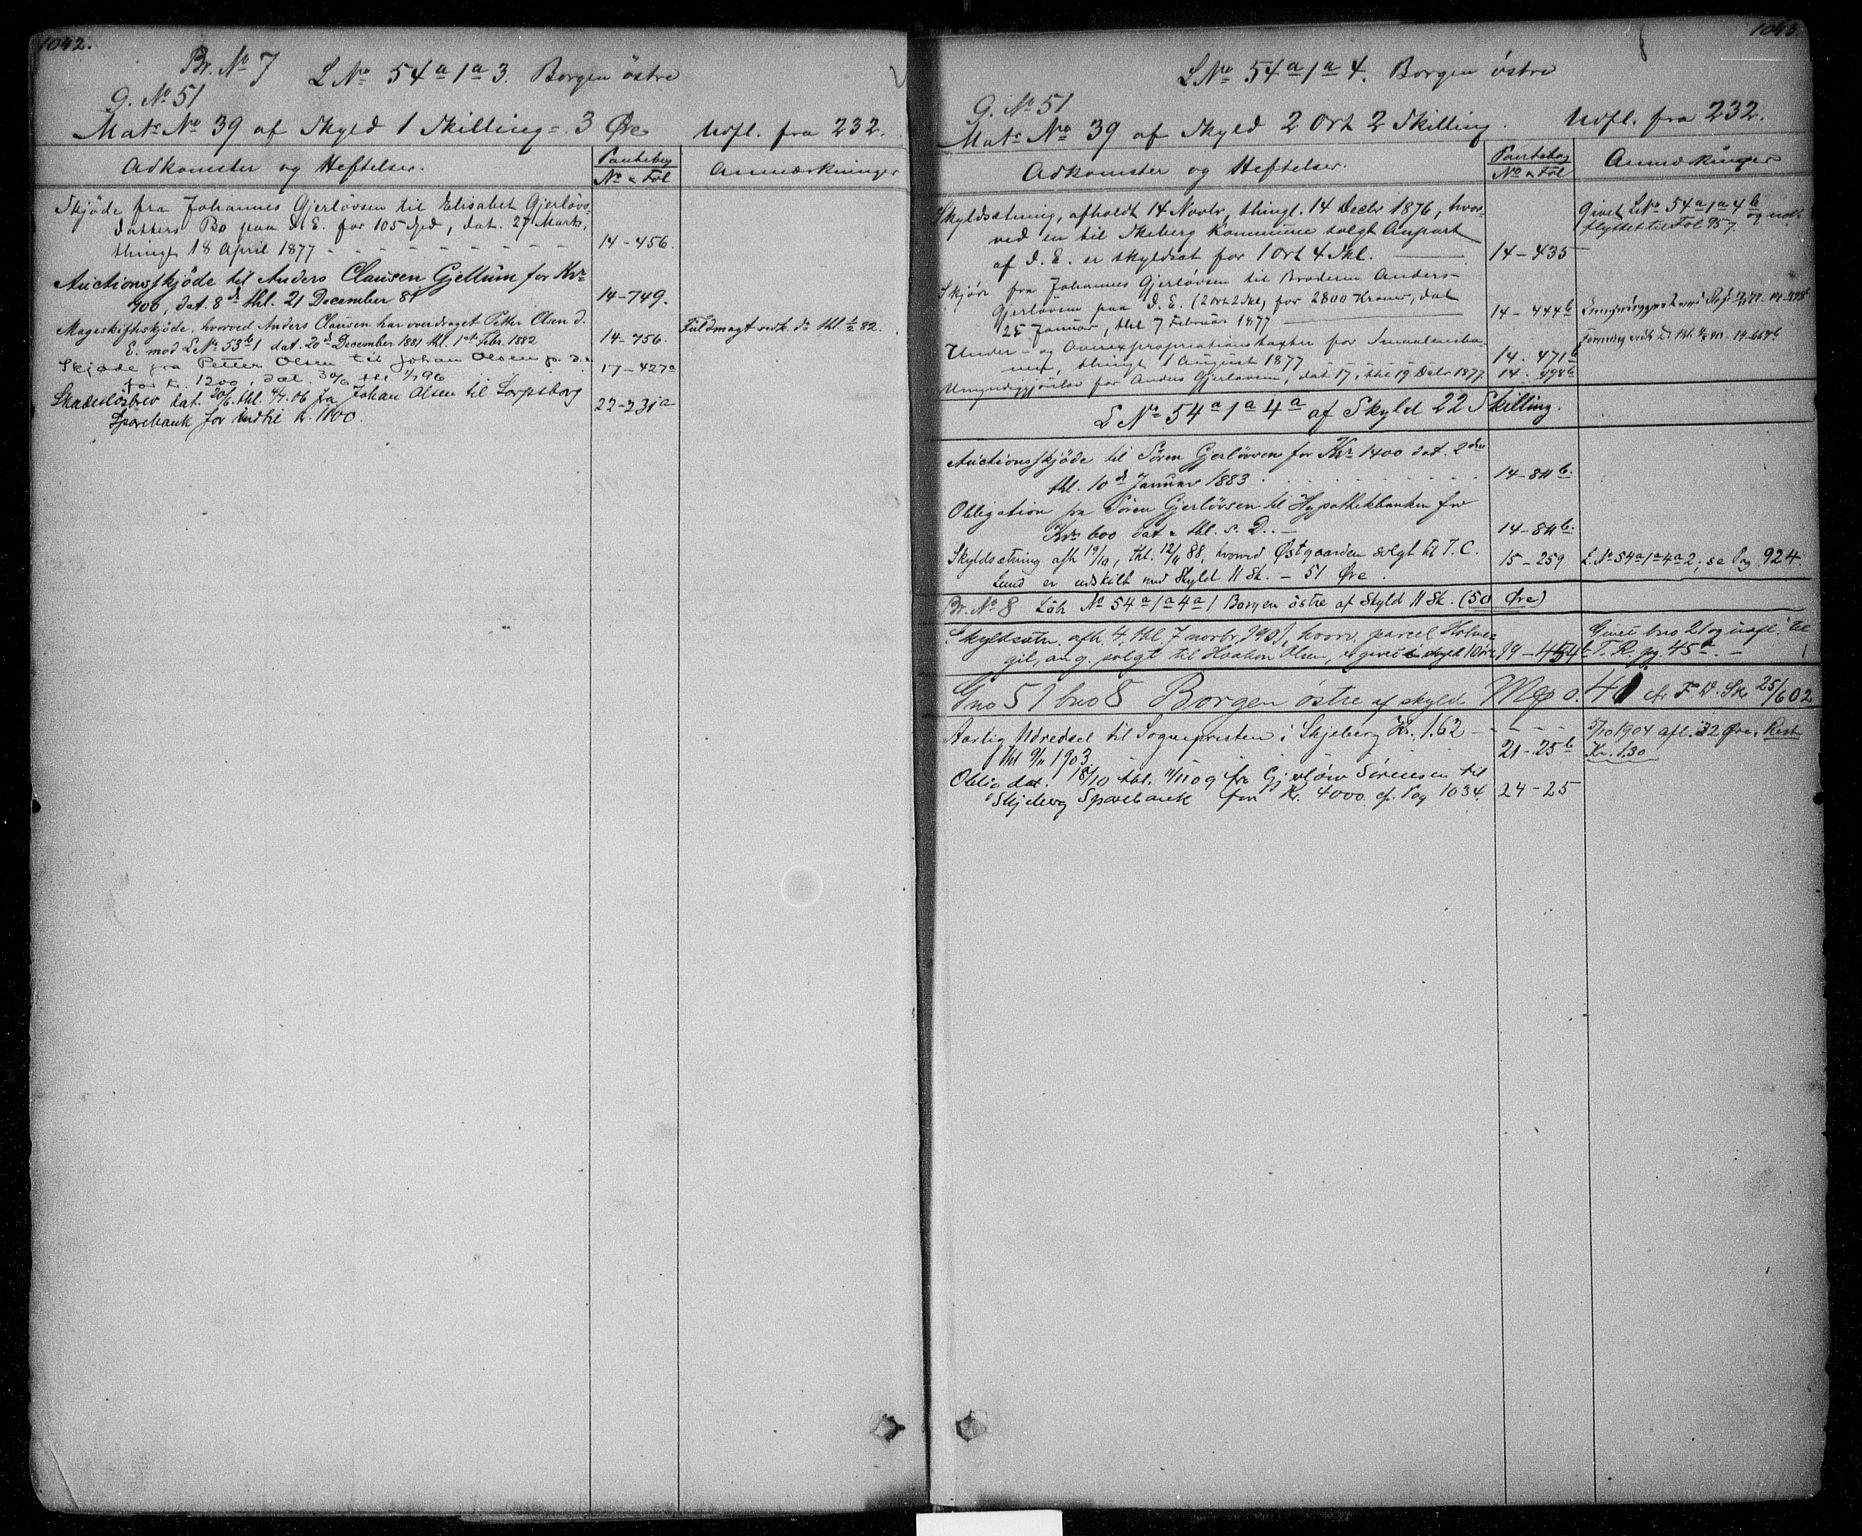 1042.
Br. No 7 L No 54a1a3. Borgen östre
G. No 51
Mats No 39 af Skyld 1 Skilling = 3 Øre Udfl. fra 232.
Adkomster og Heftelser. Pantebog No & Fol Anmærkninger
Skjöde fra Johannes Gjerlövsen til Elisabet Gjerlövs-
datters Bo paa d. E. for 105 Spd, dat. 27 Marts,
thingl. 18 April 1877 14-456.
Auctionsskjöde til Anders Clausen Gjellum for Kr
400, dat. 8de thl. 21 December 81 14-749.
Mageskifteskjöde, hvorved Anders Clausen har overdraget Petter Olsen d.
E. mod LNo 53b1 dat. 20de December 1881 thl. 1ste Febr. 1882 14-756. Fuldmagt vedk. do thl. 82.
Skjøde fra Petter Olsen til Johan Olsen p. d. e.
for k. 1200, dat. 30/6 thl. 1/7 96 17-427a
Skadeslösbrev dat. 30/6 thl. 4/7 06 fra Johan Olsen til Sarpsborg
Sparebank for indtil kr. 1100. 22-231a
1043.
L No 54a1a4. Borgen östre
G. No 51
Mats No 39 af Skyld 2 Ort 2 Skilling. Udfl. fra 232.
Adkomster og Heftelser. Pantebog No & Fol Anmærkninger
Skyldsætning, afholdt 14 Novbr, thingl. 14 Decbr 1876, hvor-
ved en til Skeberg Kommune solgt Anpart
af d. E. er skyldsat for 1 Ort 4 Skl. 14-435 Givet LNo 54a1a4b og ud-
flyttet til Fol 957.
Skjöde fra Johannes Gjerlövsen til Broderen Anders
Gjerlövsen paa d. E. (2 Ort 2 Sk) for 2800 Kroner, dat
25 Januar, thl 7 Februar 1877 14-444b
Under- og Overexpropriationstaxter for Smaalensba-
nen, thingl. 1 August 1877 14-471b
Umyndiggjörelse for Anders Gjerlövsen, dat 17, thl 19 Decbr 1877 14-498b
L No 54a1a4a af Skyld 22 Skilling.
Auctionsskjöde til Sören Gjerlövsen for Kr 1400 dat. 2den
thl. 10de Januar 1883 14-811b.
Obligation fra Sören Gjerlövsen til Hypothekbanken for
Kr 600 dat & thl. s. D. 14-811b.
Skyldsætning afh 19/10, thl. 12/11 88, hvorved Østgaarden solgt til T. C.
Lund er udskilt med Skyld 11 Sk. - 51 Øre. 15-259 L.No 54a1a4a2, se Pag. 924.
Br. No 8 Löb No 54a1a4a1 Borgen östre af Skyld 11 Sk. (50 Øre)
Skyldsætn. afh. 4. thl. 7 novbr. 1901, hvorv. parcel Holme-
gil, ang. solgt til Haakon Olsen, er givet skyld 10 øre 19-454b Givet bno 21 og udfl. til
T. R. pg. 45a.
Gno 51 bno 8 Borgen östre af skyld Mk 0.41 cfr. F. D. Sk 25/6 02
Aarlig Udredsel til Sognepresten i Skjeberg Kr. 1.62
thl 9/11 1903 21-25b 5/10 1904 afl. 32 Øre. Rest
Kr. 1.30
Oblig dat. 18/10 thl. 11/11 09 fra Gjerlöw Sörensen til
Skjeberg Sparebank for Kr. 4000. cf. Pag 1034. 24-25